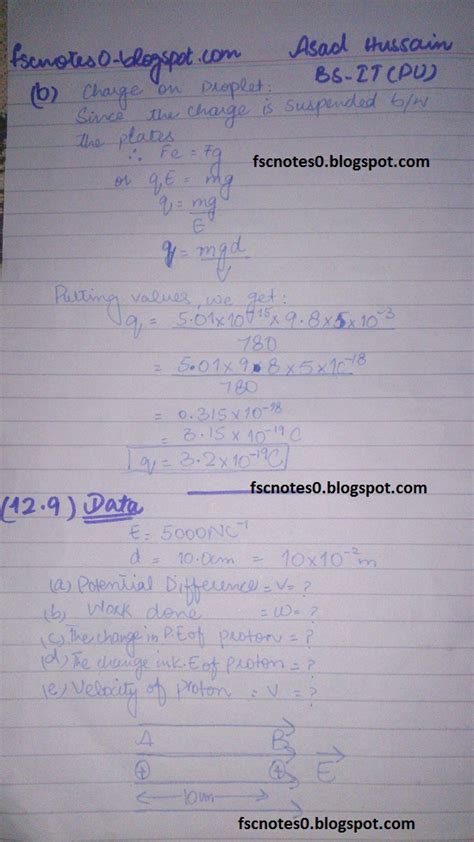 fscnotes0-blogspot.com Asad Hussain
BS-IT(PU)
(b) Charge on Droplet:
Since the charge is suspended b/w
the plates
∴ Fe = Fg
fscnotes0.blogspot.com
or qE = mg
q = mg/E
q = mgd/V
Putting values, we get:
q = 5.01×10⁻¹⁵×9.8×5×10⁻³/780
= 5.01×9.8×5×10⁻¹⁸/780
= 0.315×10⁻¹⁸
= 3.15×10⁻¹⁹C
q = 3.2×10⁻¹⁹C
fscnotes0.blogspot.com
(12.9) Data
E = 5000NC⁻¹
d = 10.0cm = 10×10⁻²m
(a) Potential Difference = V = ?
(b) Work done = W = ?
(c) The change in P.E of proton = ?
(d) The change in K.E of proton = ?
(e) Velocity of proton = V = ?
A B
⊕ ⊕ E
10cm
fscnotes0.blogspot.com